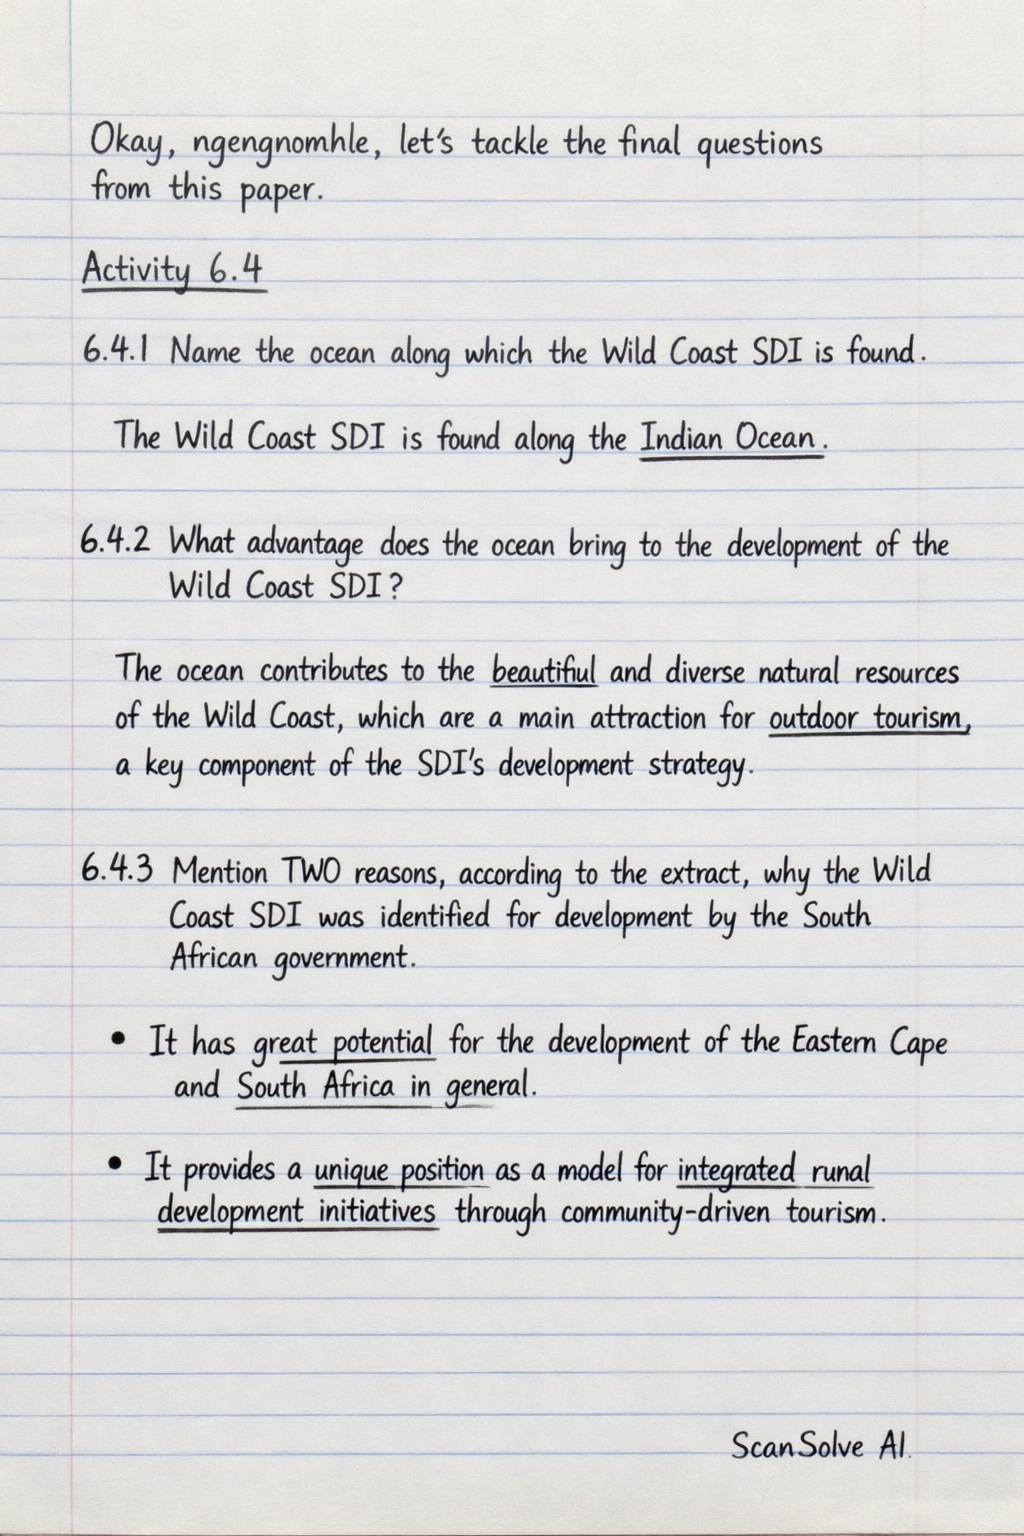 Okay, ngengnomhle, let's tackle the final questions
from this paper.
Activity 6.4
6.4.1 Name the ocean along which the Wild Coast SDI is found.
The Wild Coast SDI is found along the Indian Ocean.
6.4.2 What advantage does the ocean bring to the development of the
Wild Coast SDI?
The ocean contributes to the beautiful and diverse natural resources
of the Wild Coast, which are a main attraction for outdoor tourism,
a key component of the SDI's development strategy.
6.4.3 Mention TWO reasons, according to the extract, why the Wild
Coast SDI was identified for development by the South
African government.
• It has great potential for the development of the Eastern Cape
and South Africa in general.
• It provides a unique position as a model for integrated runal
development initiatives through community-driven tourism.
ScanSolve AI.